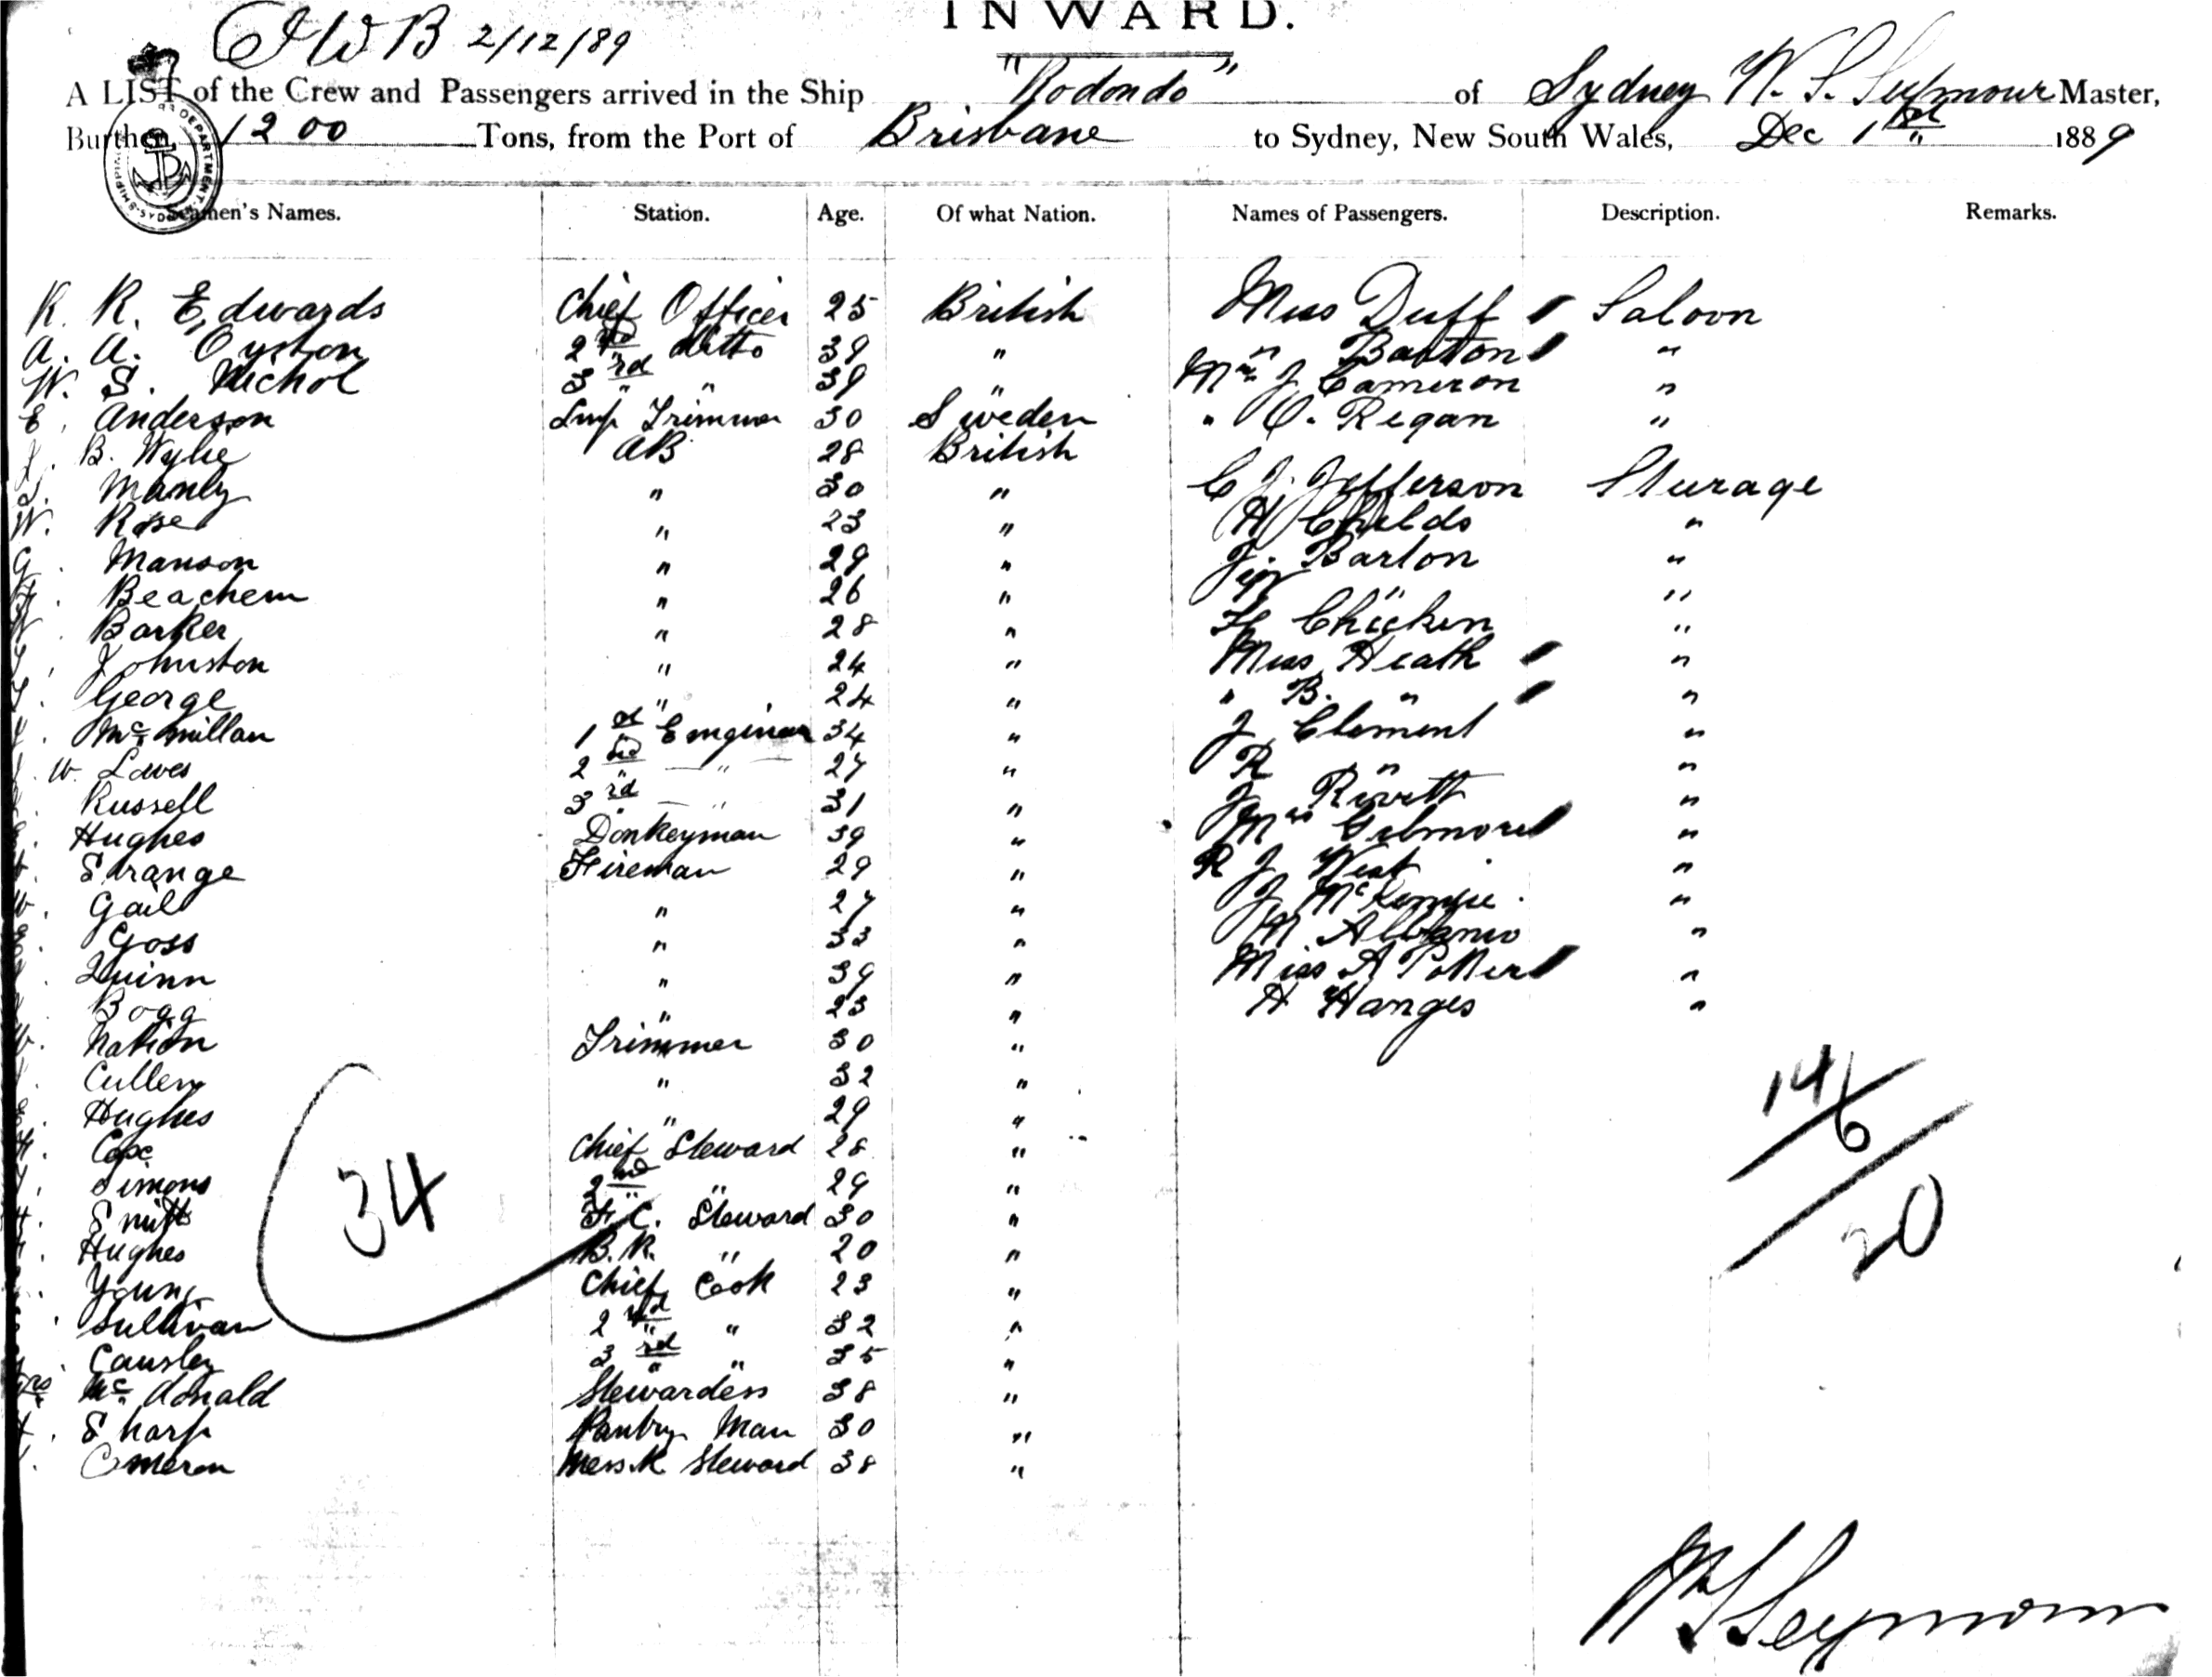 INWARD.
2/12/89
A LIST of the Crew and Passengers arrived in the Ship "Rodondo" of Sydney W. S. Seymour Master,
Burthen 1200 Tons, from the Port of Brisbane to Sydney, New South Wales, Dec 1st 1889
Seamen's Names. Station. Age. Of what Nation. Names of Passengers. Description. Remarks.
R. R. Edwards Chief Officer 25 British Miss Duff Saloon
A. A. Oyston 2nd ditto 39 " " Barton "
W. S. Nichol 3rd " 39 " Mr J Cameron "
E. Anderson Lmp Trimmer 30 Sweden " O. Regan "
B. Wylie AB 28 British
Manly " 30 " C J. Jefferson Steerage
W. Rose " 23 " A Childs "
G. Manson " 29 " J. Barton "
Beachem " 26 " "
Barker " 28 " Chicken "
Johnston " 24 " Miss Heath "
George " 24 " " B. " "
McMillan 1st Engineer 34 " J Clement "
W. Lowes 2nd " 27 " R " "
Russell 3rd " 31 " J Rivett "
Hughes Donkeyman 39 " Mrs Gilmore "
Strange Fireman 29 " R J West "
Gail " 27 " J McKenzie "
Goss " 33 " M "
Quinn " 39 " Miss A Potter "
Bogg " 23 " H Hanges "
Nation Trimmer 30 "
Cullen " 32 "
Hughes " 29 "
Cope Chief Steward 28 "
Simons 2nd " 29 "
Smith F. C. Steward 30 "
Hughes B. R. " 20 "
Young Chief Cook 23 "
Sullivan 2nd " 32 "
Causley 3rd " 35 "
Mrs McDonald Stewardess 38 "
Sharp Pantry Man 30 "
Cameron Mess R Steward 38 "
34
14/6
20
W S Seymour